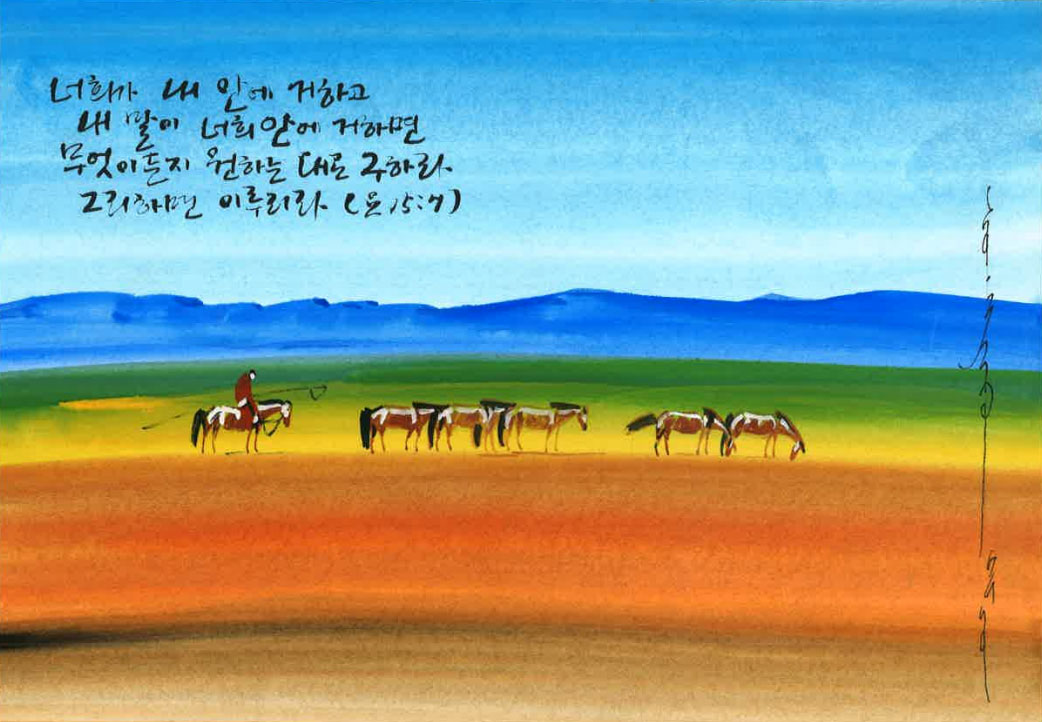 너희가 내 안에 거하고
내 말이 너희 안에 거하면
무엇이든지 원하는 대로 구하라
그리하면 이루리라 (요 15:7)